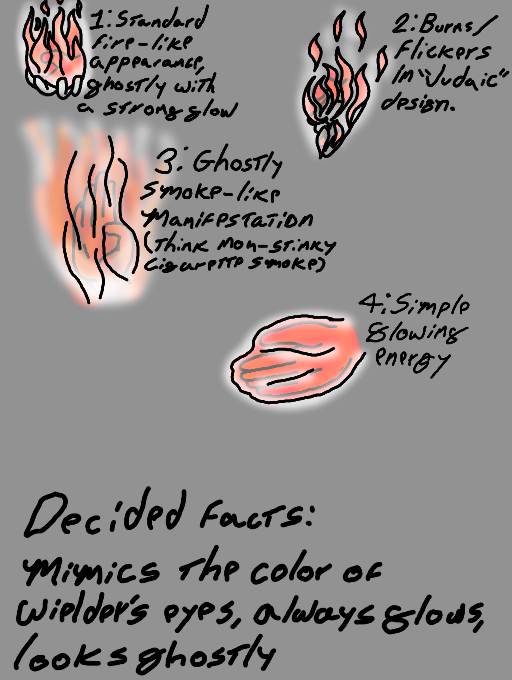 1: Standard
fire-like
appearance,
ghostly with
a strong glow
2: Burns/
Flickers
In "Judaic"
design.
3: Ghostly
smoke-like
Manifestation
(Think non-stinky
cigarette smoke)
4: Simple
glowing
energy
Decided facts:
Mimics the color of
wielder's eyes, always glows,
looks ghostly